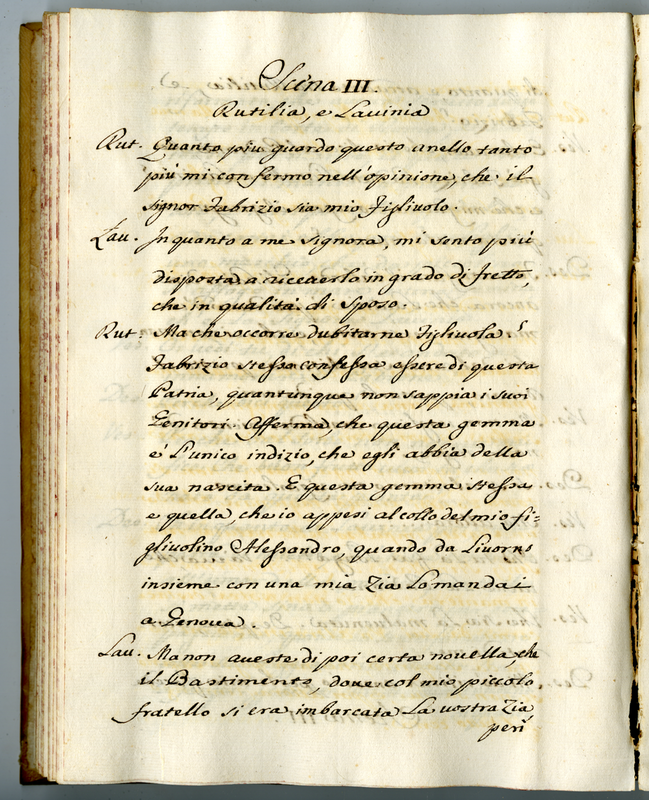 Scena III.
Rutilia, e Lavinia
Rut. Quanto piu guardo questo anello tanto
più mi confermo nell'opinione, che il
signor Fabrizio sia mio Figlivolo.
Lau. In quanto a me signora, mi sento più
disposta a riceverlo in grado di fretto,
che in qualità di sposo.
Rut: Ma che occorre dubitarne Figlivola?
Fabrizio stesso confessa essere di questa
Patria, quantunque non sappia i suoi
Genitori. Afferma, che questa gemma
e' l'unico indizio, che egli abbia della
sua nascita. E questa gemma stessa
e quella, che io appesi al collo del mio fi=
glivolino Alessandro, quando da Livorno
insieme con una mia Zia lo mandai
a Genova.
Lau. Ma non aveste di poi certa novella, che
il Bastimento, dove col mio piccolo
fratello si era imbarcata la vostra Zia
perì